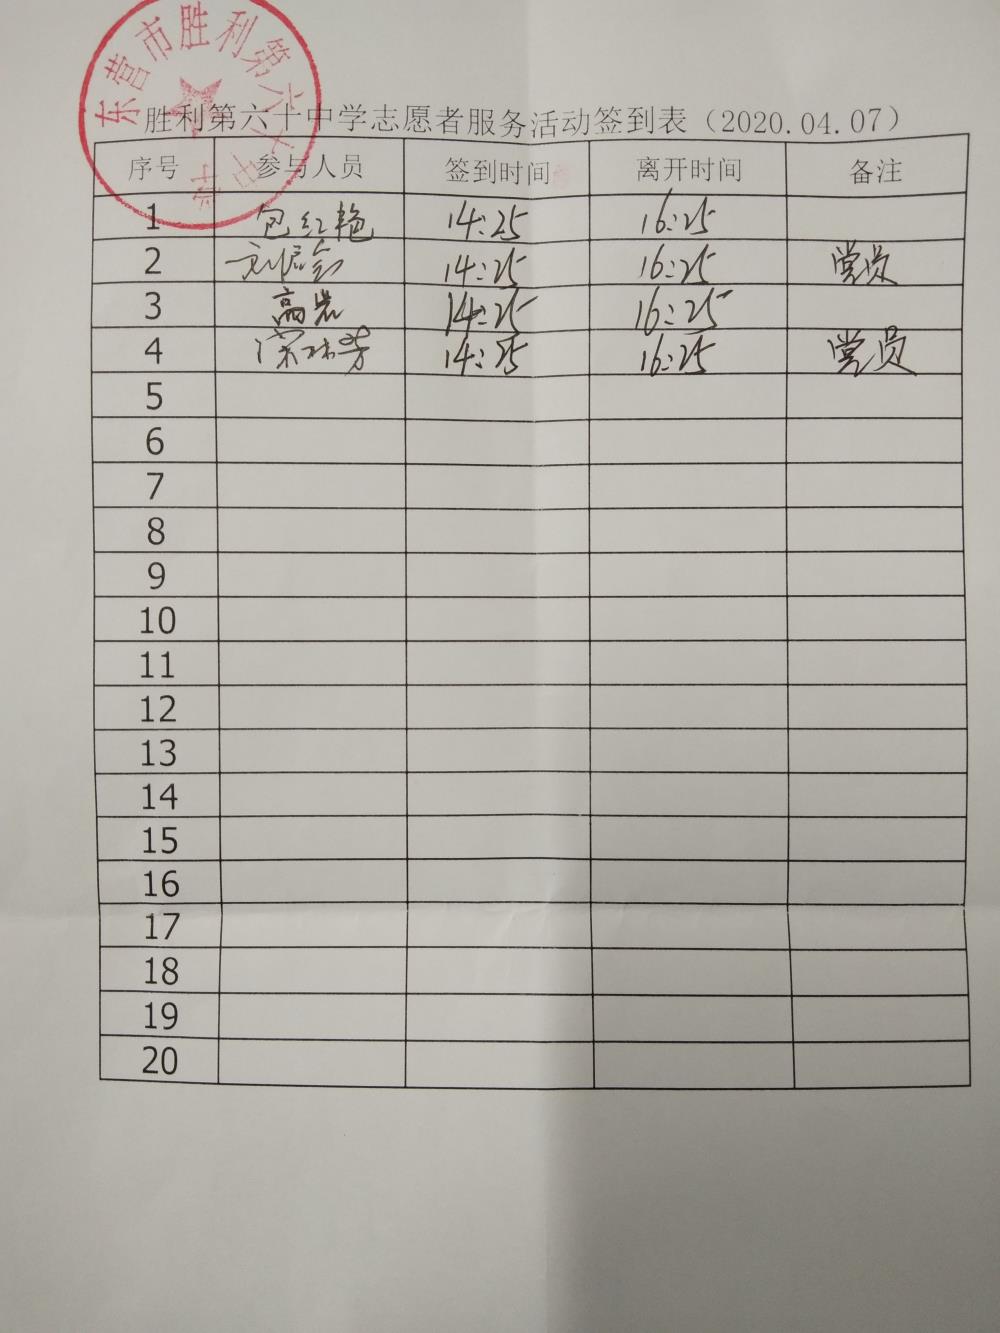 东营市胜利第六十中学
胜利第六十中学志愿者服务活动签到表（2020.04.07）
序号 参与人员 签到时间 离开时间 备注
1 包红艳 14:25 16:25
2 14:25 16:25 党员
3 高岩 14:25 16:25
4 14:25 16:25 党员
5
6
7
8
9
10
11
12
13
14
15
16
17
18
19
20